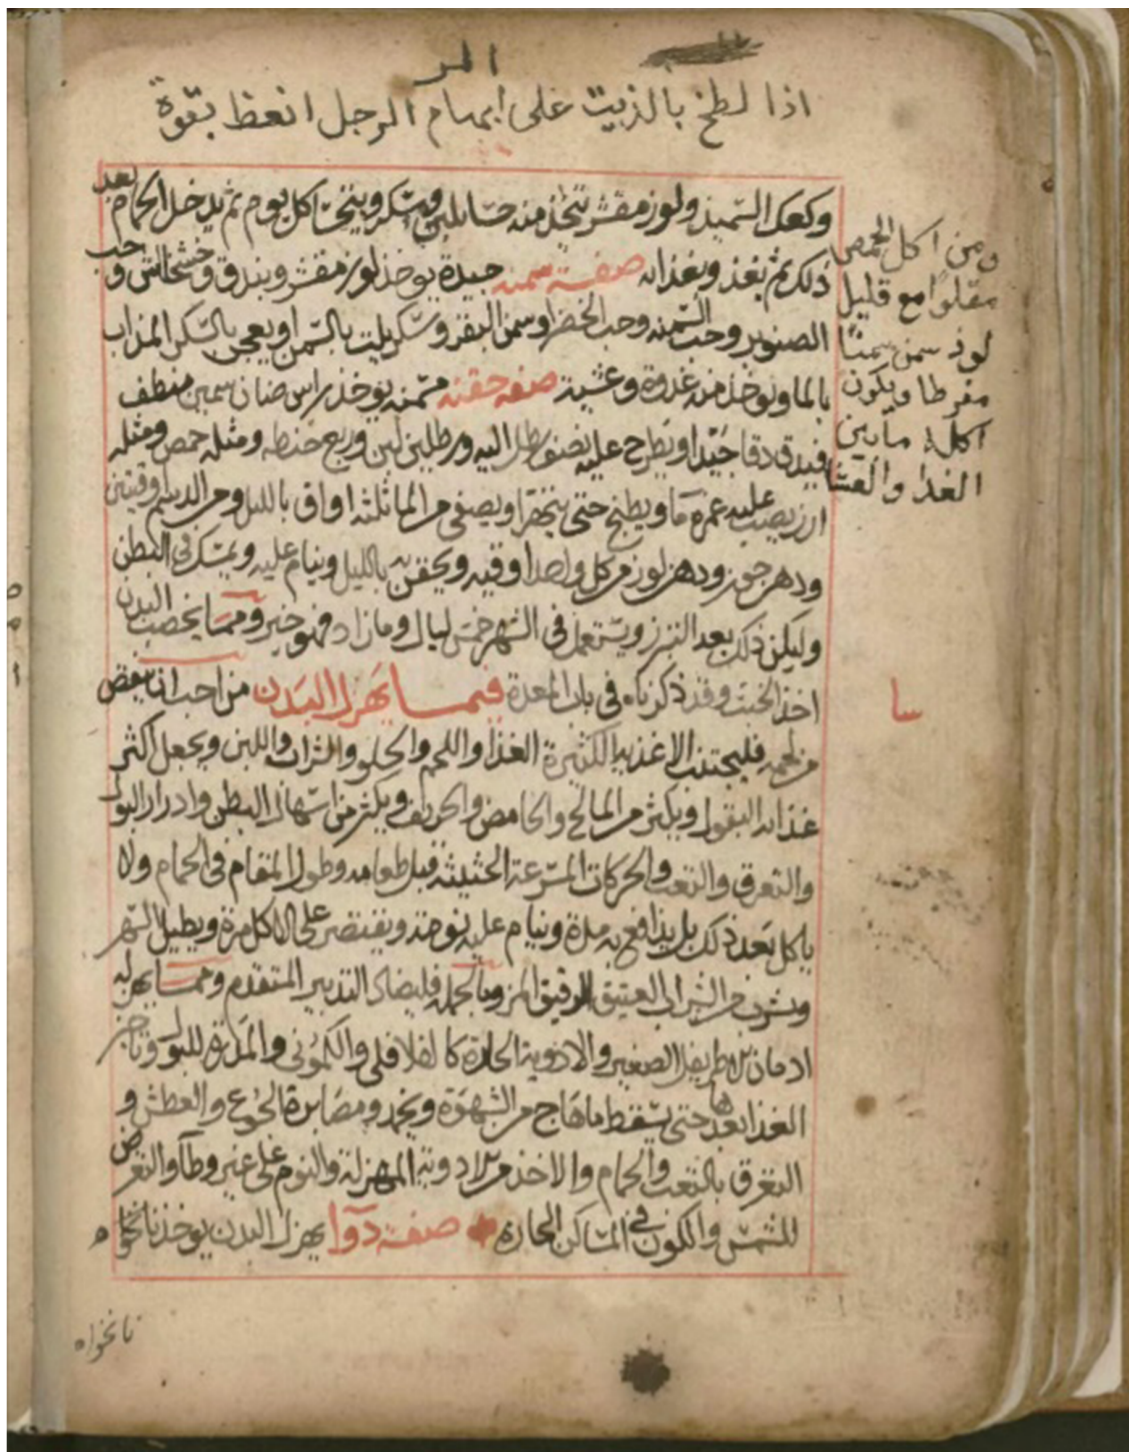 المر
اذا لطخ بالزيت على ابهام الرجل انعظ بقوة
وكعك السميذ ولوز مقشر يتخذ منه حسا بلبن وسكر ويتحسا كل يوم ثم يدخل الحمام بعد
ذلك ثم بعد وبغذائه صفة سمنه جيدة يوخذ لوز مقشر وبندق وخشخاش وحب
الصنوبر وحب السمنه وحب الخضرا وسمن البقر وسكر يلت بالسمن او يعجن بالسكر المذاب
بالما ويوخذ منه غدوة وعشية صفه حقنه مسمنه يوخذ راس ضان سمين منظف
فيدق دقا جيدا ويطرح عليه نصف رطل اليه ورطلين لبن وربع حنطه ومثله حمص ومثله
ارز يصب عليه غمره ما ويطبخ حتى يتهرا ويصفى من الما ثلثة اواق بالليل ومن الدسم اوقيتين
ودهن جوز ودهن لوز من كل واحد اوقيه ويحقن به بالليل وينام عليه ويمسك في البطن
وليكن ذلك بعد التبرز ويستعمل في الشهر خمس ليال وما زاد فهو خير ومما يخصب البدن
اخذ الخبث وقد ذكرناه في باب المعدة فيما يهزل البدن من احب ان ينقص
من لحمه فليجتنب الاغذيه الكثيرة الغذا واللحم والحلو والشراب واللبن ويجعل اكثر
غذائه البقول ويكثر من المالح والحامض والحريف ويكثر من اسهال البطن وادرار البول
والتعرق والتعب والحركات المسرعة الحثيثه قبل طعامه وطول المقام في الحمام ولا
ياكل بعد ذلك بل يدافع به مدة وينام عليه نومة ويقتصر على الاكل مرة ويطيل السهر
ويشرب من الشراب العتيق الرقيق المز وبالجمله فليضاد التدبير المتقدم ومما يهزله
ادمان الاطريفل الصغير والادوية الحارة كالفلافلي والكموني والمدرة للبول وتاخير
الغذا بعدها حتى يسقط ما هاج من الشهوة ويخمد ومصابرة الجوع والعطش و
التعرق بالتعب والحمام والاخذ من الادوية المهزلة والنوم على غير وطآ والتعرض
للشمس والكون في المساكن الحارة صفة دوآ يهزل البدن يوخذ نانخواه
نانخواه
ومن اكل الحمص
مقلوا مع قليل
لوز سمن سمنًا
مفرطا ويكون
اكله ما بين
الغدا والعشا